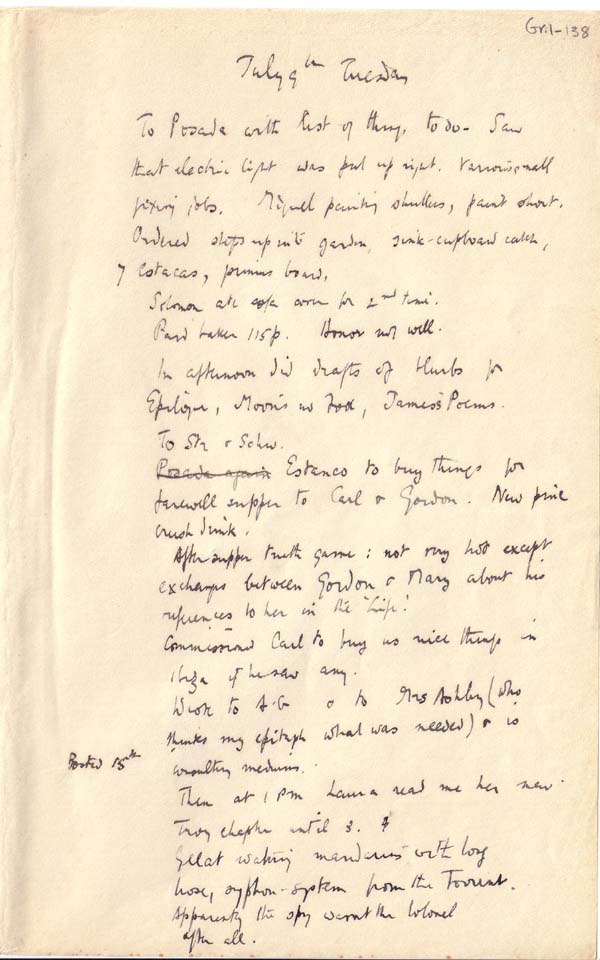 Gril-138
July 9th Tuesday
To Posada with list of things to do - Saw
that electric light was put up right. Various small
fixing jobs. Miguel painting shutters, paint short.
Ordered steps up into garden, sink-cupboard catch,
7 estacas, primus board.
Solomon ate sofa cover for 2nd time.
Paid baker 115p. Honor not well.
In afternoon did drafts of blurbs for
Epilogue, Moon's no Fool, James's Poems.
To Str & Schw.
Posada again Estanco to buy things for
farewell supper to Carl & Gordon. New pine
crush drink.
After supper truth game: not very hot except
exchanges between Gordon & Mary about his
references to her in the 'Life'.
Commissioned Carl to buy us nice things in
Ibiza if he saw any.
Wrote to A.G. & to Mrs Ashley (who
thinks my epitaph what was needed) & is
consulting mediums.
Posted 15th
Then at 1 pm Laura read me her new
Troy chapter until 3.
Gelat watering mandarins with long
hose, syphon-system from the Torrent.
Apparently the spy wasnt the Colonel
after all.